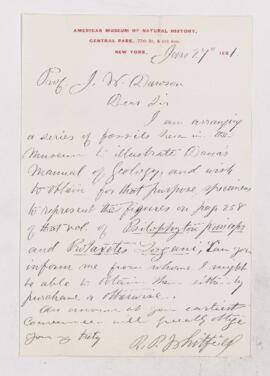 AMERICAN MUSEUM OF NATURAL HISTORY,
CENTRAL PARK, 77th St. & 8th Ave.
NEW YORK, Jan 27th 1881
Prof. J. W. Dawson
Dear Sir
I am arranging
a series of fossils here in the
Museum to illustrate Dana's
Manual of Geology, and wish
to obtain for that purpose specimens
to represent the figures on page 258
of that vol. of Psilophyton princeps
and Protaxites Logani; Can you
inform me from whom I might
be able to obtain them either by
purchase or otherwise.
An answer at your earliest
Convenience will greatly oblige
Yours truly
R. P. Whitfield